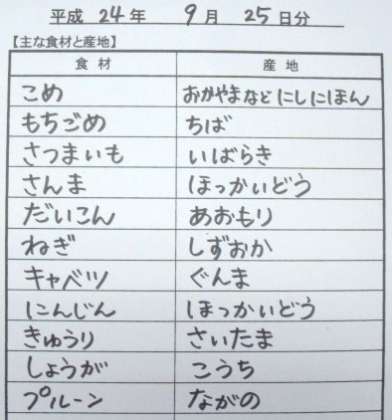 平成 24 年 9 月 25 日分
【主な食材と産地】
食材 産地
こめ おかやまなどにしにほん
もちごめ ちば
さつまいも いばらき
さんま ほっかいどう
だいこん あおもり
ねぎ しずおか
キャベツ ぐんま
にんじん ほっかいどう
きゅうり さいたま
しょうが こうち
プルーン ながの